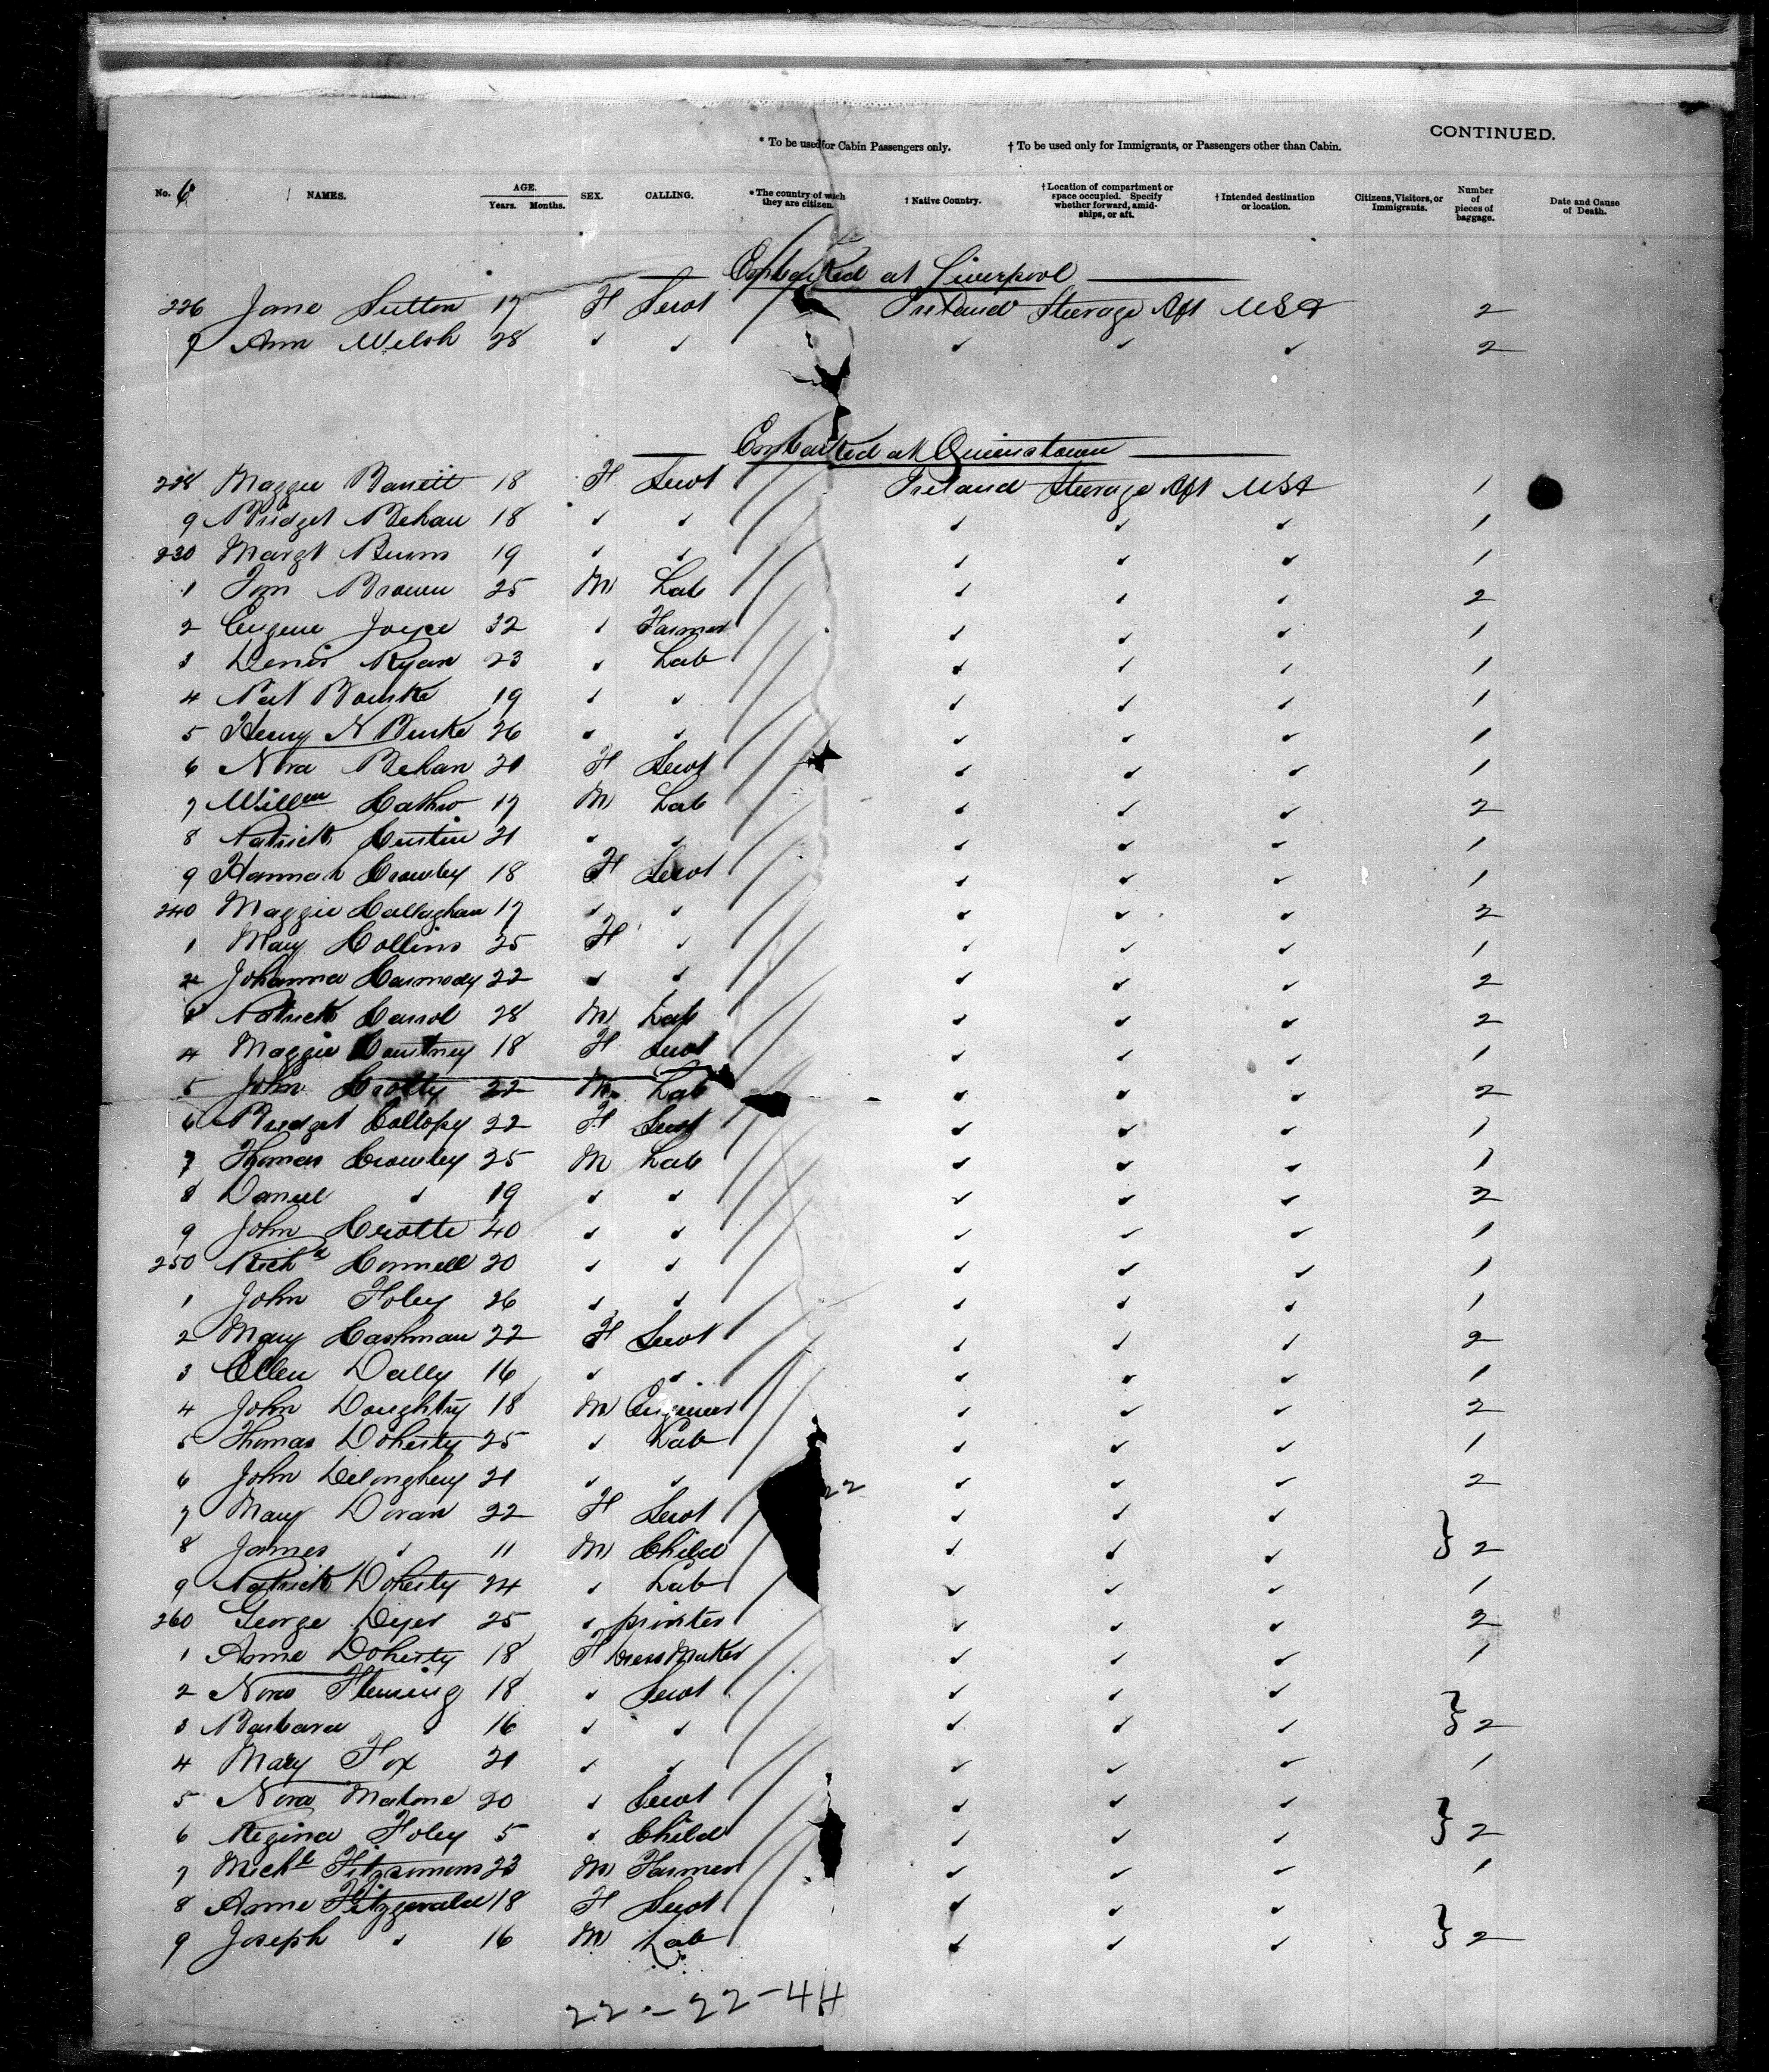 CONTINUED.
* To be used for Cabin Passengers only. † To be used only for Immigrants, or Passengers other than Cabin.
No. 6 NAMES. AGE. Years. Months. SEX. CALLING. * The country of which they are citizen. † Native Country. † Location of compartment or space occupied. Specify whether forward, amidships, or aft. † Intended destination or location. Citizens, Visitors, or Immigrants. Number of pieces of baggage. Date and Cause of Death.
Embarked at Liverpool
226 Jane Sutton 17 F Servt Ireland Steerage Aft USA 2
7 Ann Welsh 28 ✓ ✓ ✓ ✓ ✓ 2
Embarked at Queenstown
228 Maggie Barrett 18 F Servt Ireland Steerage Aft USA 1
9 Bridget Behan 18 ✓ ✓ ✓ ✓ ✓ 1
230 Margt Burns 19 ✓ ✓ ✓ ✓ ✓ 1
1 Tom Brown 25 M Lab ✓ ✓ ✓ 2
2 Eugene Joyce 32 ✓ Farmer ✓ ✓ ✓ 1
3 Denis Ryan 23 ✓ Lab ✓ ✓ ✓ 1
4 Pat Bourke 19 ✓ ✓ ✓ ✓ ✓ 1
5 Henry N Burke 26 ✓ ✓ ✓ ✓ ✓ 1
6 Nora Behan 21 F Servt ✓ ✓ ✓ 1
7 Willm 17 M Lab ✓ ✓ ✓ 2
8 Patrick 21 ✓ ✓ ✓ ✓ ✓ 1
9 Hannah Crowley 18 F Servt ✓ ✓ ✓ 1
240 Maggie Callaghan 17 ✓ ✓ ✓ ✓ ✓ 2
1 Mary Collins 25 F ✓ ✓ ✓ ✓ 1
2 Johanna Carmody 22 ✓ ✓ ✓ ✓ ✓ 2
3 Patrick Carrol 28 M Lab ✓ ✓ ✓ 2
4 Maggie Courtney 18 F Servt ✓ ✓ ✓ 1
5 John Crotty 22 M Lab ✓ ✓ ✓ 2
6 Bridget Collopy 22 F Servt ✓ ✓ ✓ 1
7 Thomas Crowley 25 M Lab ✓ ✓ ✓ 1
8 Daniel ✓ 19 ✓ ✓ ✓ ✓ ✓ 2
9 John Crotte 40 ✓ ✓ ✓ ✓ ✓ 1
250 Richd Connell 20 ✓ ✓ ✓ ✓ ✓ 1
1 John Foley 26 ✓ ✓ ✓ ✓ ✓ 1
2 Mary Cashman 22 F Servt ✓ ✓ ✓ 2
3 Ellen Dally 16 ✓ ✓ ✓ ✓ ✓ 1
4 John Doughtry 18 M Engineer ✓ ✓ ✓ 2
5 Thomas Doherty 25 ✓ Lab ✓ ✓ ✓ 1
6 John Deloughery 21 ✓ ✓ 22 ✓ ✓ ✓ 2
7 Mary Doran 22 F Servt ✓ ✓ ✓
8 James ✓ 11 M Child ✓ ✓ ✓ } 2
9 Patrick Doherty 24 ✓ Lab ✓ ✓ ✓ 1
260 George Dyer 25 ✓ printer ✓ ✓ ✓ 2
1 Anne Doherty 18 F Dress Maker ✓ ✓ ✓ 1
2 Nora Fleming 18 ✓ Servt ✓ ✓ ✓
3 Barbara ✓ 16 ✓ ✓ ✓ ✓ ✓ } 2
4 Mary Fox 21 ✓ ✓ ✓ ✓ ✓ 1
5 Nora Malone 20 ✓ Servt ✓ ✓ ✓
6 Regina Foley 5 ✓ Child ✓ ✓ ✓ } 2
7 Michl Fitzsimons 23 M Farmer ✓ ✓ ✓ 1
8 Anne Fitzgerald 18 F Servt ✓ ✓ ✓
9 Joseph ✓ 16 M Lab ✓ ✓ ✓ } 2
22 - 22 - 44